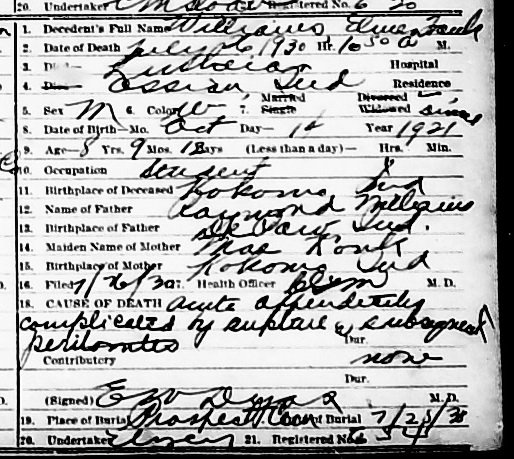 20. Undertaker Registered No. 6 20
1. Decedent's Full Name Williams, Elmer
2. Date of Death July 26 1930 Hr. 10 30 a M.
3. Lutheran Hospital
4. Ossian Ind Residence
5. Sex M 6. Color W 7. Married Single Divorced Widowed Single
8. Date of Birth—Mo. Oct Day— Year 1921
9. Age— 8 Yrs. 9 Mos. Days (Less than a day)— Hrs. Min.
10. Occupation Student
11. Birthplace of Deceased Kokomo, Ind
12. Name of Father Raymond Williams
13. Birthplace of Father Ind.
14. Maiden Name of Mother Mae
15. Birthplace of Mother Kokomo Ind
16. Filed 7/26/30 17. Health Officer M. D.
18. CAUSE OF DEATH acute appendicitis
complicated by rupture & subsequent
peritonitis Dur.
Contributory none
Dur.
(Signed) M. D.
19. Place of Burial Prospect of Burial 7/28/30
20. Undertaker 21. Registered No.